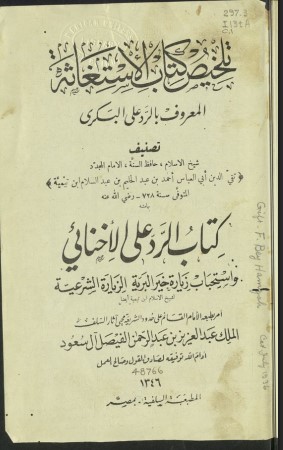 297.3
I131A
C.1
تلخيص كتاب الاستغاثة
المعروف بالرد على البكري
تصنيف
شيخ الاسلام ، حافظ السنة ، الامام المجدد
﴿ تقي الدين أبي العباس أحمد بن عبد الحليم بن عبد السلام ابن تيمية ﴾
المتوفى سنة ٧٢٨ - رضي الله عنه
كتاب الرد على الأخنائي
واستحباب زيارة خير البرية الزيارة الشرعية
لشيخ الاسلام ابن تيمية أيضا
أمر بطبعه الأمام القائم على حدود الشريعة محيي آثار السلف
الملك عبد العزيز بن عبد الرحمن الفيصل آل سعود
ادام الله توفيقه لصادق القول وصالح العمل
48766
١٣٤٦
المطبعة السلفية - بمصر
Gift F. Bey Hamzah
Cat July 1936